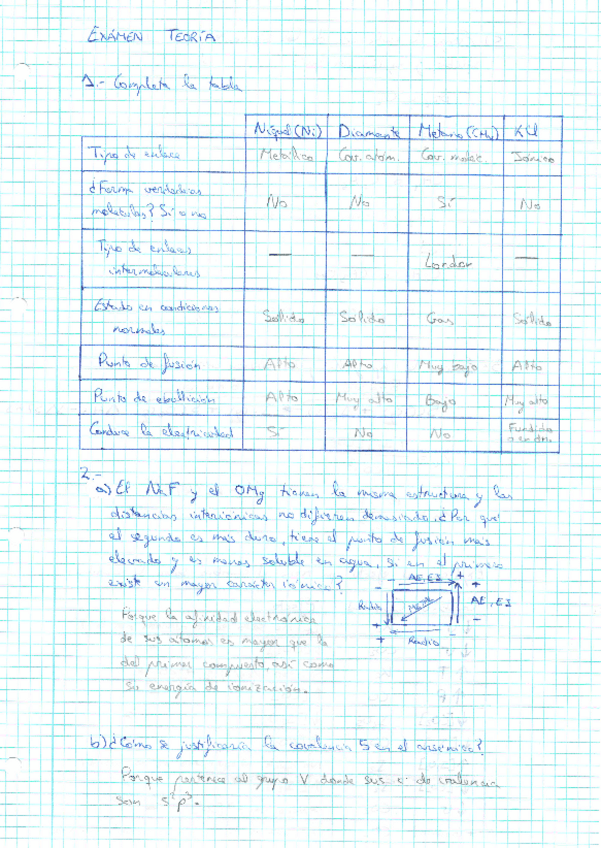 EXÁMEN TEORÍA
1.- Completa la tabla
Niquel (Ni) Diamante Metano (CH4) KCl
Tipo de enlace Metálico Cov. atom. Cov. molec. Iónico
¿Forma verdaderas
moleculas? Si o no No No Sí No
Tipo de enlaces
intermoleculares — — London —
Estado en condiciones
normales Solido Solido Gas Solido
Punto de fusión Alto Alto Muy bajo Alto
Punto de ebullición Alto Muy alto Bajo Muy alto
Conduce la electricidad Sí No No Fundido
o en dis.
2.-
a) El NaF y el OMg tienen la misma estructura y las
distancias interiónicas no difieren demasiado. ¿Por qué
el segundo es más duro, tiene el punto de fusión más
elevado y es menos soluble en agua, si en el primero
existe un mayor caracter iónico?
- AE, EI +
Radio
AE, EI
Radio
Porque la afinidad electrónica
de sus atomos es mayor que la
del primer compuesto, así como
su energía de ionización.
b) ¿Cómo se justificaria la covalencia 5 en el arsenico?
Porque pertenece al grupo V donde sus e- de valencia
son s²p³.